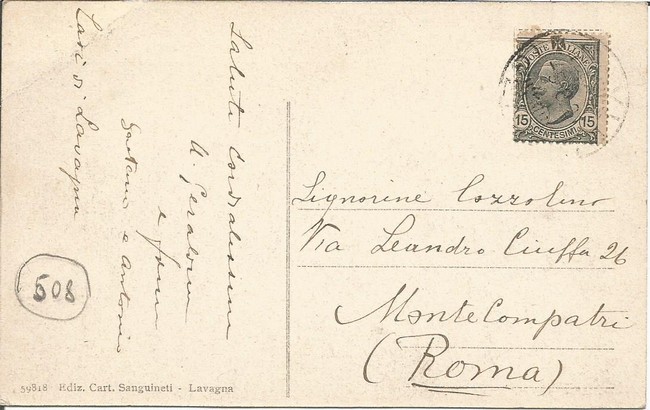 Saluti Cordialissimi
e
Gaetano e Antonio
Cavi di Lavagna
508
59818 Ediz. Cart. Sanguineti - Lavagna
POSTE ITALIANE
15 15
CENTESIMI
Signorine Cozzolino
Via Leandro Ciuffa 26
MonteCompatri
(Roma)